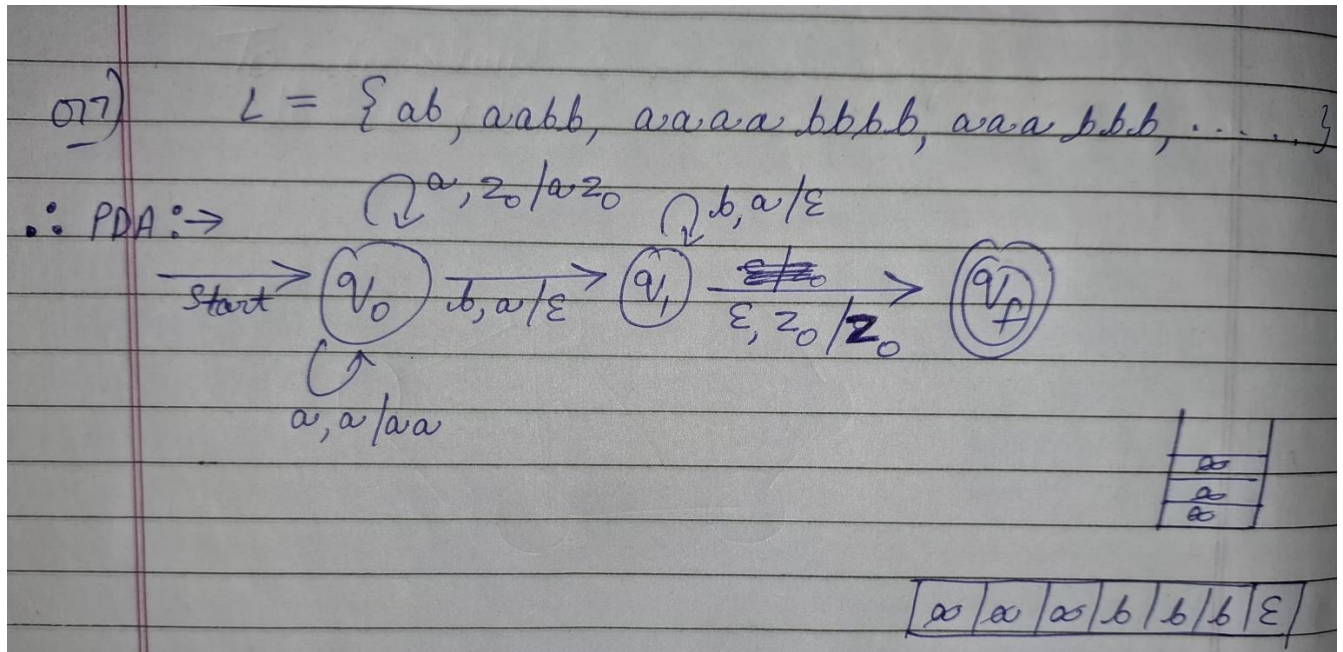 Q17) L = { ab, aabb, aaaa bbbb, aaa bbb, ..... }
a, z₀/a z₀
b, a/ε
∴ PDA :→
Start
q₀
b, a/ε
q₁
ε, z₀/z₀
q_f
a, a/aa
a
a
a
a a a b b b ε